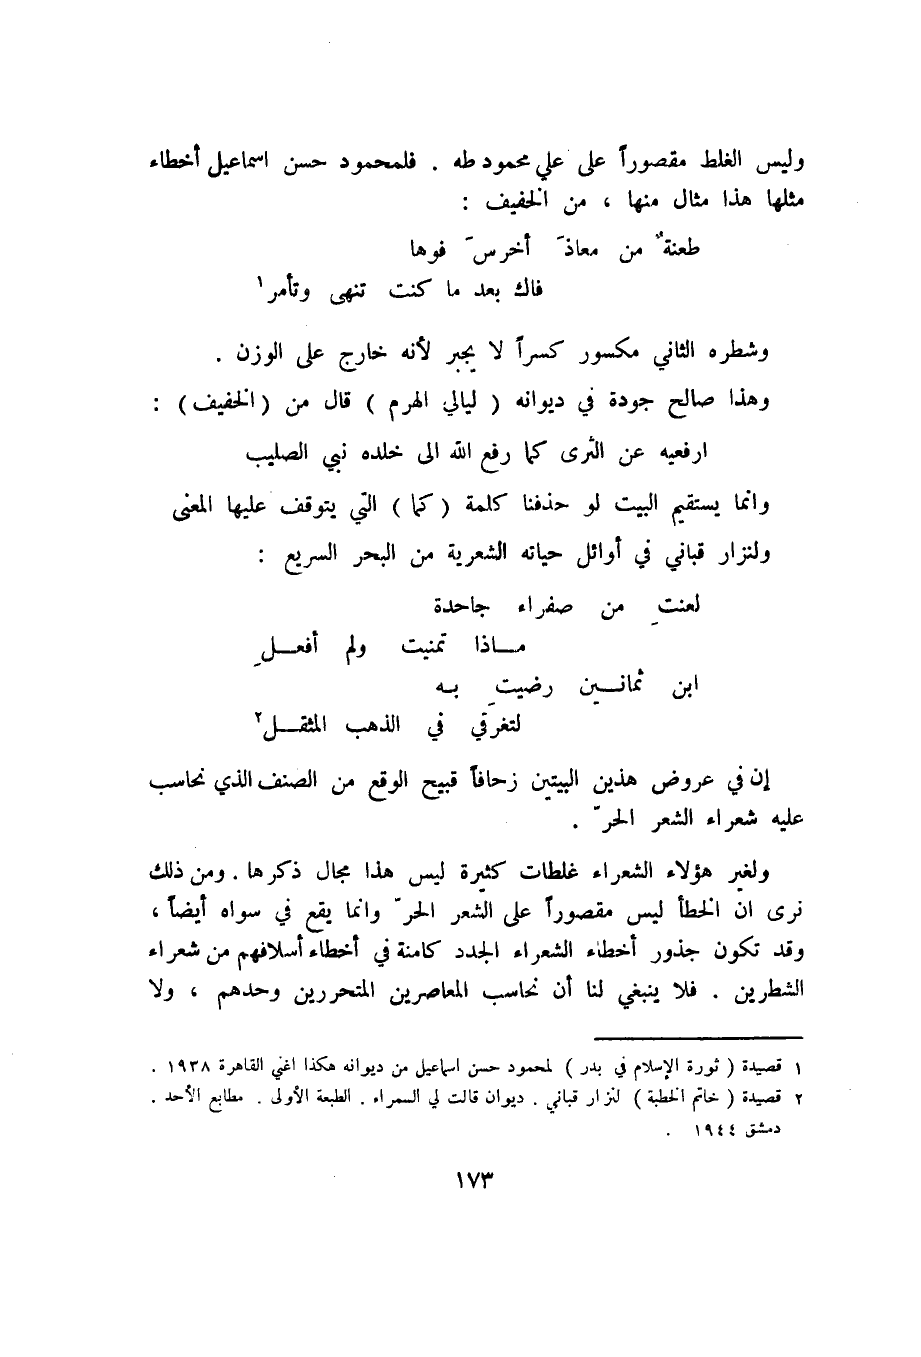 وليس الغلط مقصوراً على علي محمود طه . فلمحمود حسن اسماعيل أخطاء
مثلها هذا مثال منها ، من الخفيف :
طعنةٌ من معاذَ أخرسَ فوها
فاك بعد ما كنت تنهى وتأمر١
وشطره الثاني مكسور كسراً لا يجبر لأنه خارج على الوزن .
وهذا صالح جودة في ديوانه ( ليالي الهرم ) قال من ( الخفيف ) :
ارفعيه عن الثرى كما رفع الله الى خلده نبي الصليب
وانما يستقيم البيت لو حذفنا كلمة ( كما ) التي يتوقف عليها المعنى
ولنزار قباني في أوائل حياته الشعرية من البحر السريع :
لعنتِ من صفراء جاحدة
مــاذا تمنيت ولم أفعــلِ
ابن ثمانــين رضيتِ بــه
لتغرقي في الذهب المثقــل٢
إن في عروض هذين البيتين زحافاً قبيح الوقع من الصنف الذي نحاسب
عليه شعراء الشعر الحرّ .
ولغير هؤلاء الشعراء غلطات كثيرة ليس هذا مجال ذكرها . ومن ذلك
نرى ان الخطأ ليس مقصوراً على الشعر الحرّ وانما يقع في سواه أيضاً ،
وقد تكون جذور أخطاء الشعراء الجدد كامنة في أخطاء أسلافهم من شعراء
الشطرين . فلا ينبغي لنا أن نحاسب المعاصرين المتحررين وحدهم ، ولا
١ قصيدة ( ثورة الإسلام في بدر ) لمحمود حسن اسماعيل من ديوانه هكذا اغني القاهرة ١٩٣٨ .
٢ قصيدة ( خاتم الخطبة ) لنزار قباني . ديوان قالت لي السمراء . الطبعة الأولى . مطابع الأحد .
دمشق ١٩٤٤ .
١٧٣